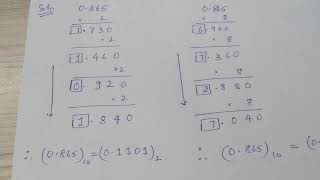 Soln 0.865 0.865
× 2 × 8
1.730 6.920
× 2 × 8
1.460 7.360
×2 × 8
0.920 2.880
× 2 × 8
1.840 7.040
∴ (0.865)10 = (0.1101)2 ∴ (0.865)10 = (0.